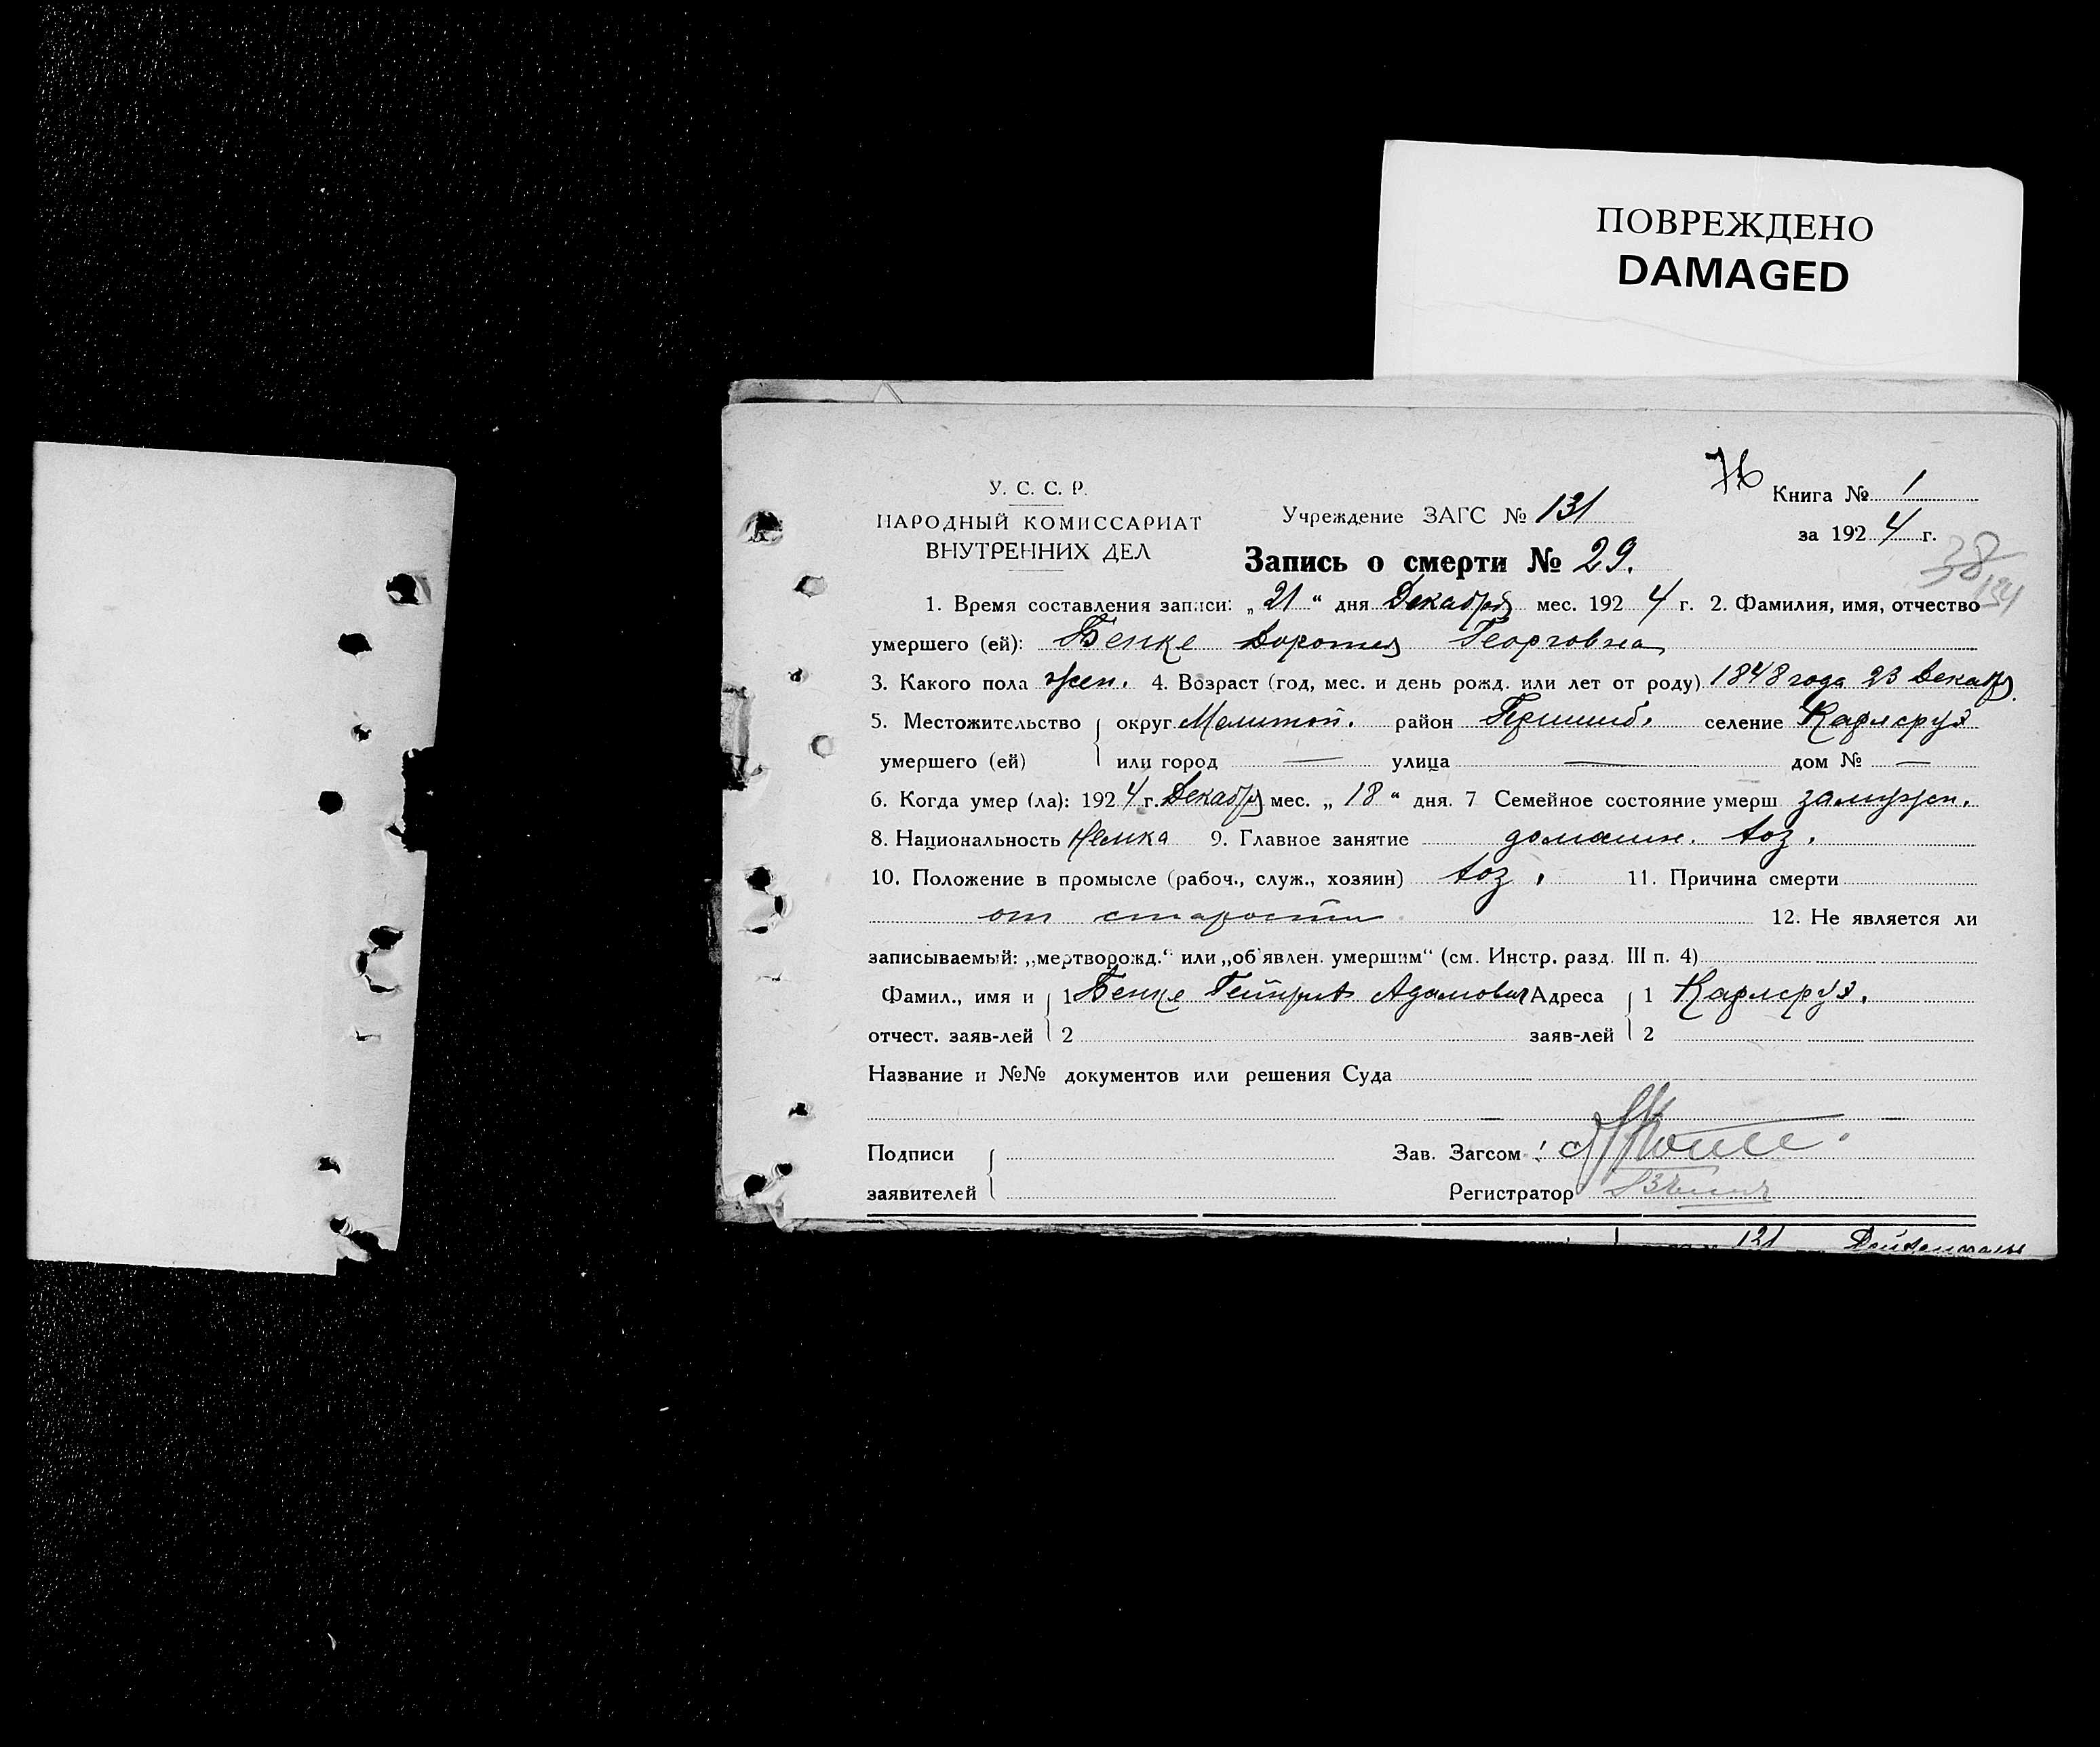 ПОВРЕЖДЕНО
DAMAGED
У. С. С. Р.
НАРОДНЫЙ КОМИССАРИАТ
ВНУТРЕННИХ ДЕЛ
Учреждение ЗАГС № 131
Запись о смерти № 29.
Книга № 1
за 1924 г.
38
134
1. Время составления записи: „21“ дня Декабря мес. 1924 г. 2. Фамилия, имя, отчество
умершего (ей): Бенке Доротея Георговна
3. Какого пола жен. 4. Возраст (год, мес. и день рожд. или лет от роду) 1848 года 23 Декабр.
5. Местожительство округ Мелитоп. район Пришиб. селение Карлсруэ
умершего (ей) или город — улица — дом № —
6. Когда умер (ла): 1924 г. Декабря мес. „18“ дня. 7 Семейное состояние умерш замужен.
8. Национальность Немка 9. Главное занятие домашн. хоз.
10. Положение в промысле (рабоч., служ., хозяин) хоз. 11. Причина смерти
от старости 12. Не является ли
записываемый: „мертворожд.“ или „об'явлен. умершим“ (см. Инстр. разд. III п. 4)
Фамил., имя и 1 Бенке Гейнрих Адамович Адреса 1 Карлсруэ.
отчест. заяв-лей 2 заяв-лей 2
Название и №№ документов или решения Суда
Подписи Зав. Загсом
заявителей Регистратор
121